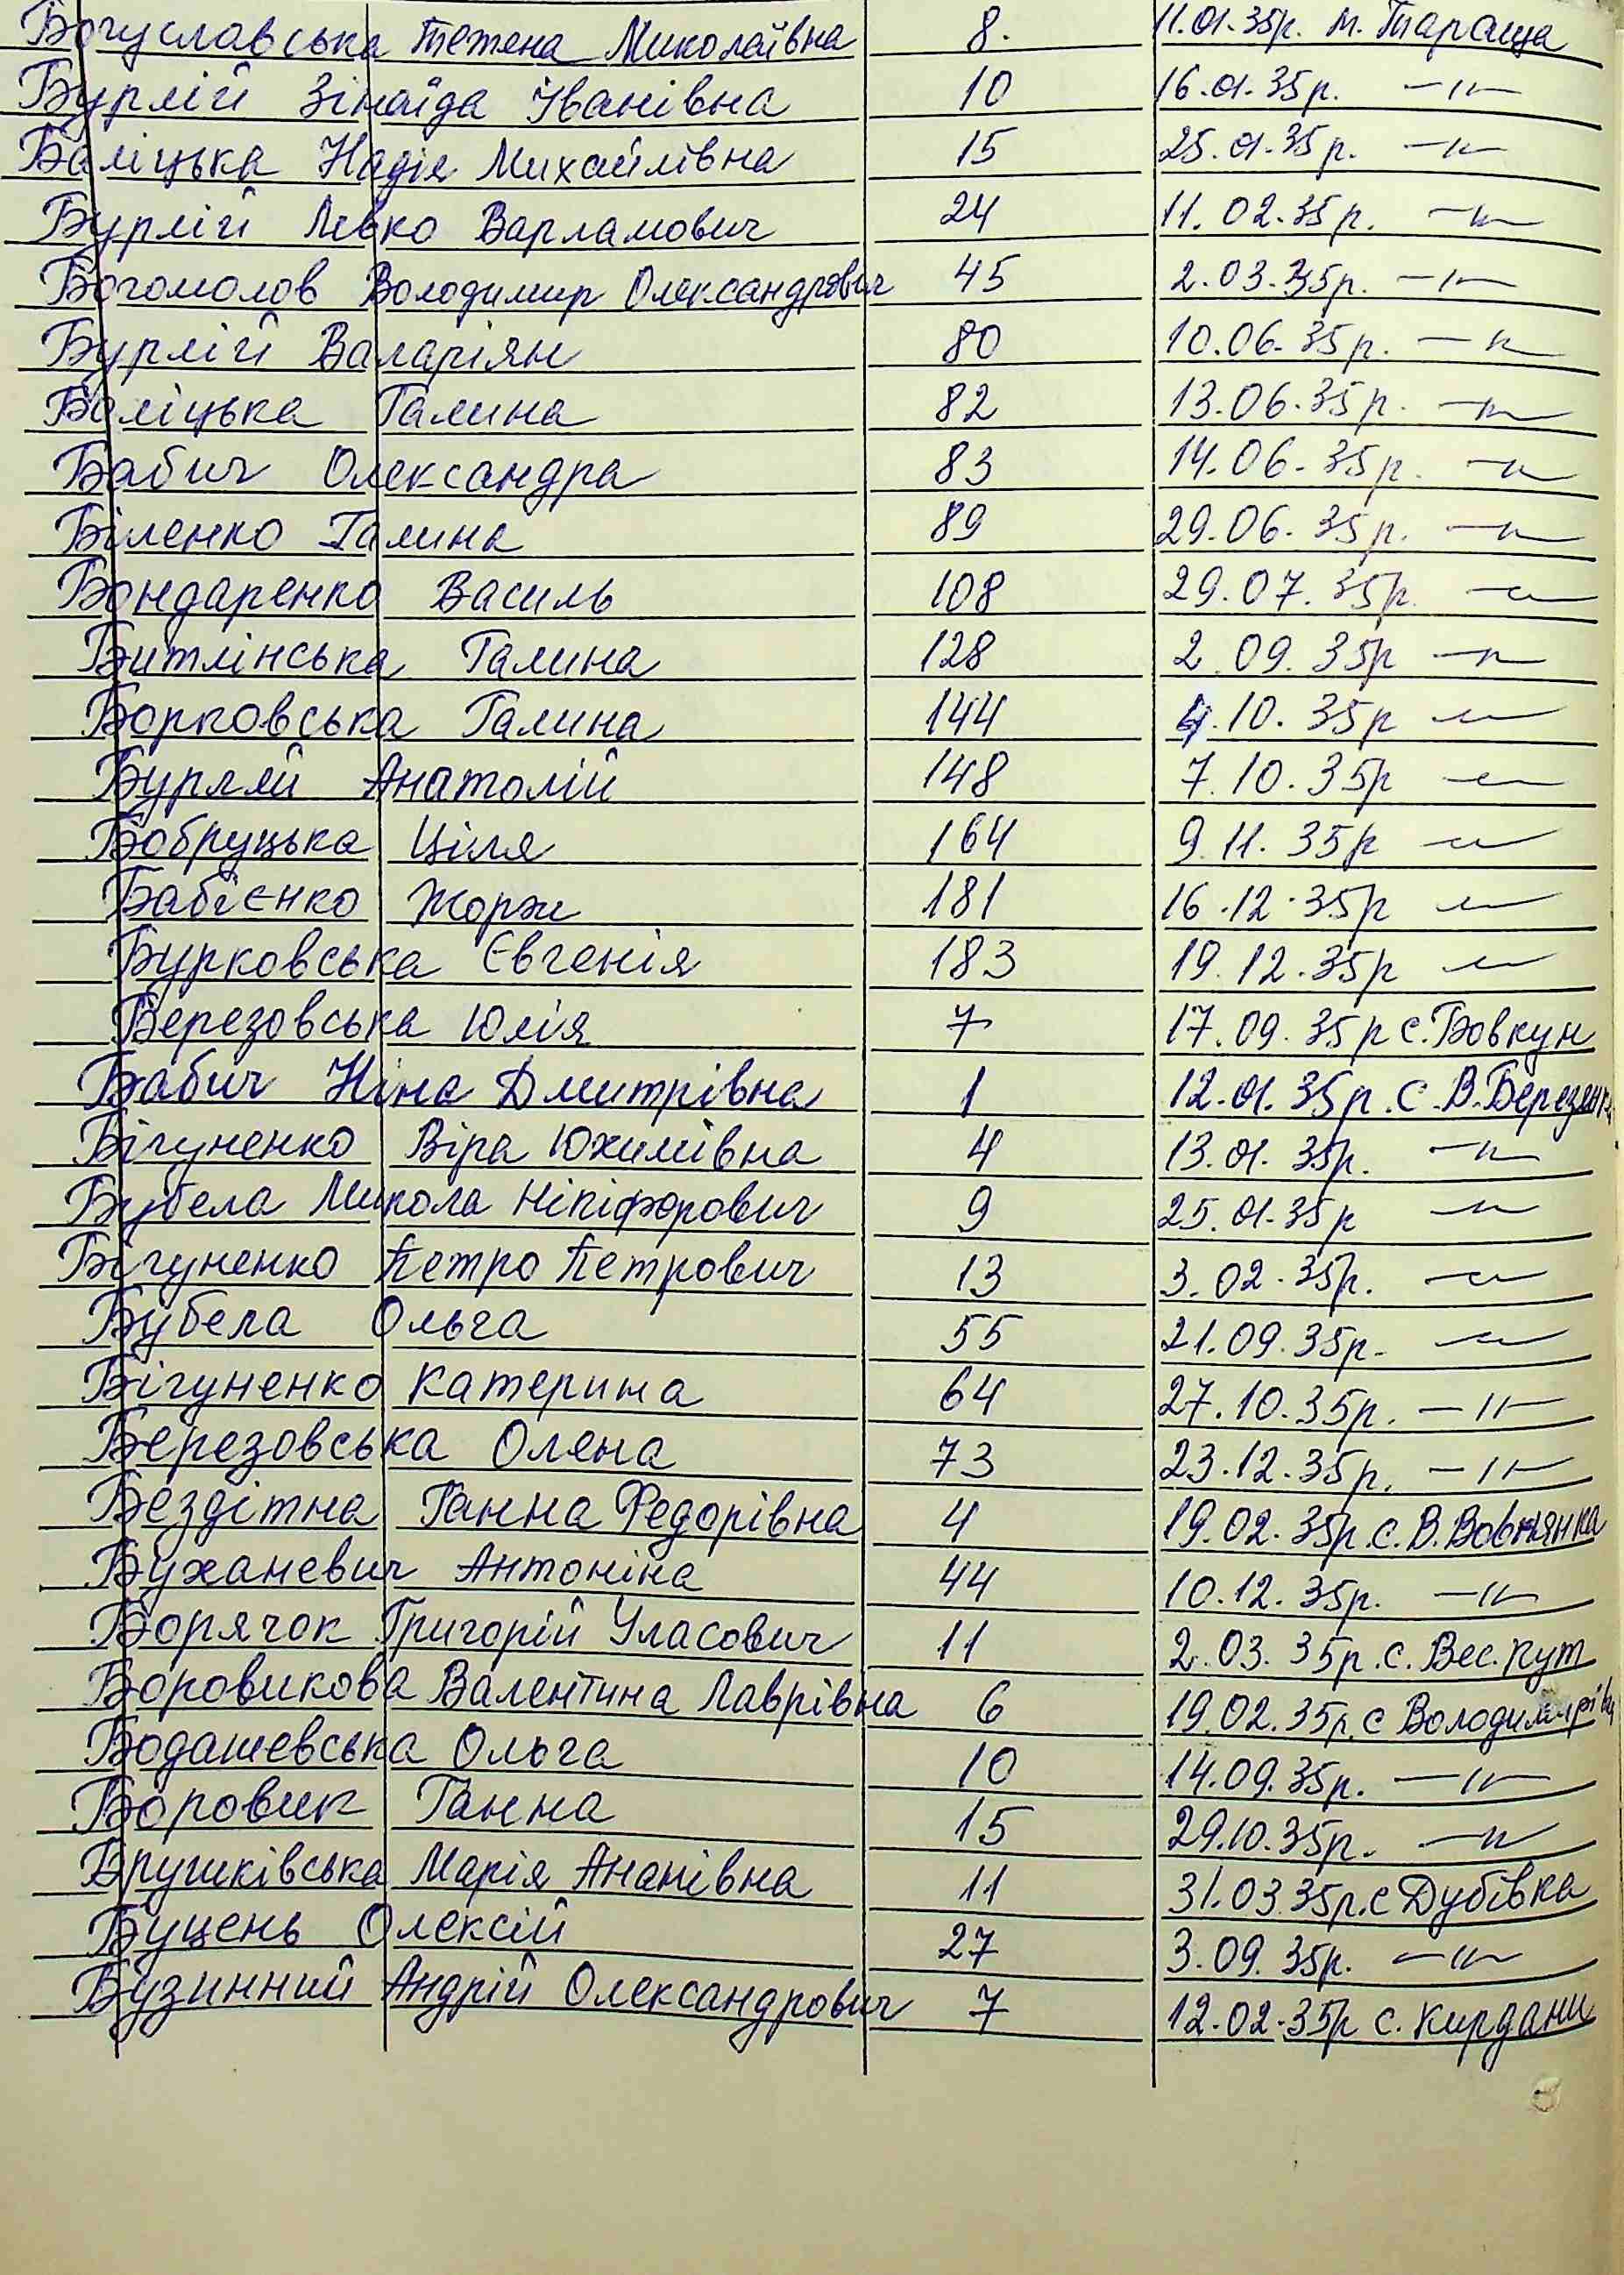 Богуславська Тетяна Миколаївна 8. 11.01.35р. м. Тараща
Бурлій Зінаїда Іванівна 10 16.01.35р. —"—
Баліцька Надія Михайлівна 15 25.01.35р. —"—
Бурлій Левко Варламович 24 11.02.35р. —"—
Богомолов Володимир Олександрович 45 2.03.35р. —"—
Бурлій Валаріян 80 10.06.35р. —"—
Баліцька Галина 82 13.06.35р. —"—
Бабич Олександра 83 14.06.35р. —"—
Біленко Галина 89 29.06.35р. —"—
Бондаренко Василь 108 29.07.35р. —"—
Битлінська Галина 128 2.09.35р —"—
Борковська Галина 144 4.10.35р —"—
Бурлій Анатолій 148 7.10.35р —"—
Бобруцька Ціля 164 9.11.35р —"—
Бабієнко Жорж 181 16.12.35р —"—
Бурковська Євгенія 183 19.12.35р —"—
Березовська Юлія 7 17.09.35р с.Бовкун
Бабич Ніна Дмитрівна 1 12.01.35р. с.В.Березянка
Бігуненко Віра Юхимівна 4 13.01.35р. —"—
Бубела Микола Нікіфорович 9 25.01.35р —"—
Бігуненко Петро Петрович 13 3.02.35р. —"—
Бубела Ольга 55 21.09.35р. —"—
Бігуненко Катерина 64 27.10.35р. —"—
Березовська Олена 73 23.12.35р. —"—
Бездітна Ганна Федорівна 4 19.02.35р.с.В.Вовнянка
Буханевич Антоніна 44 10.12.35р. —"—
Борячок Григорій Уласович 11 2.03.35р.с.Вес.Кут
Боровикова Валентина Лаврівна 6 19.02.35р.с Володимирівка
Бодашевська Ольга 10 14.09.35р. —"—
Боровик Ганна 15 29.10.35р. —"—
Брушківська Марія Ананівна 11 31.03.35р.с Дубівка
Буцень Олексій 27 3.09.35р. —"—
Бузинний Андрій Олександрович 7 12.02.35р с. Кирдани